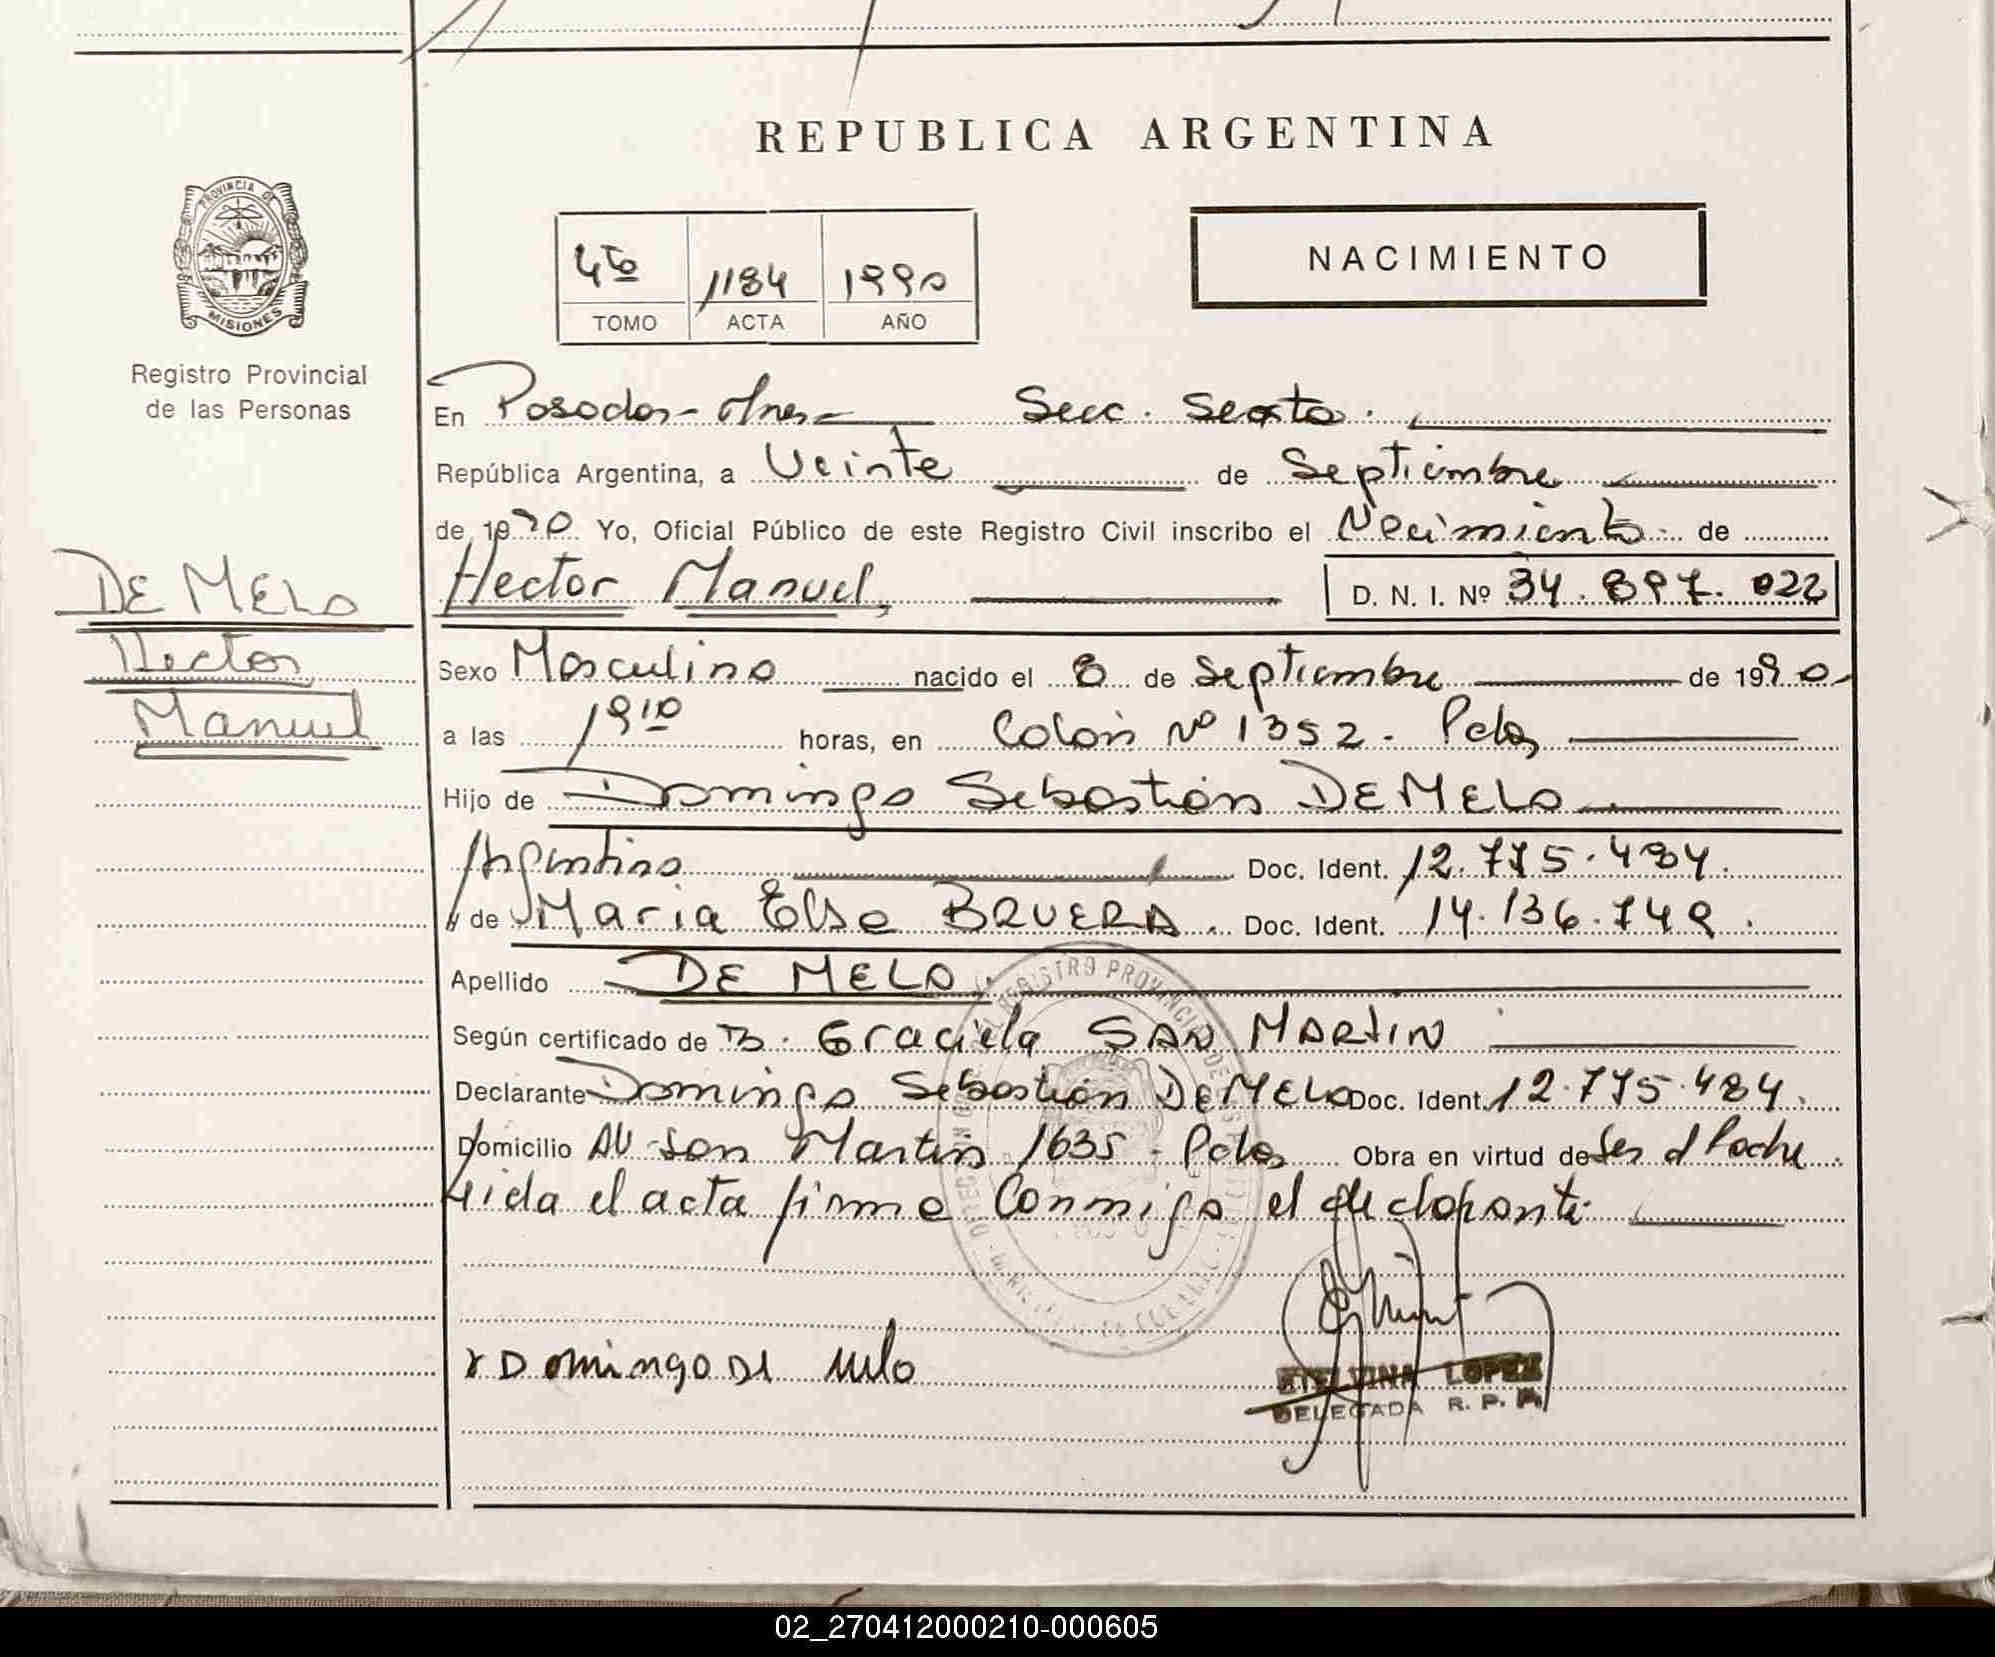 REPUBLICA ARGENTINA
PROVINCIA DE
MISIONES
Registro Provincial
de las Personas
4to 1184 1990
TOMO ACTA AÑO
NACIMIENTO
En Posadas - Mnes - Secc. Sexta.
República Argentina, a Veinte de Septiembre
de 1990 Yo, Oficial Público de este Registro Civil inscribo el Nacimiento de
DE MELO
Hector
Manuel
Hector Manuel, D. N. I. Nº 34.897.022
Sexo Masculino nacido el 8 de Septiembre de 1990
a las 19 10 horas, en Colón Nº 1352. Pdas
Hijo de Domingo Sebastián DE MELO
Argentino Doc. Ident. 12.775.484.
y de María Elsa BRUERA. Doc. Ident. 14.136.749.
Apellido DE MELO.
Según certificado de Graciela SAN MARTIN
Declarante Domingo Sebastián DE MELO Doc. Ident. 12.775.484.
Domicilio AV San Martin 1635 - Pdas Obra en virtud de Ser el Padre
Leida el acta firma Conmigo el declarante
x DOmingo De Melo
ETELVINA LOPEZ
DELEGADA R. P. P.
02_270412000210-000605